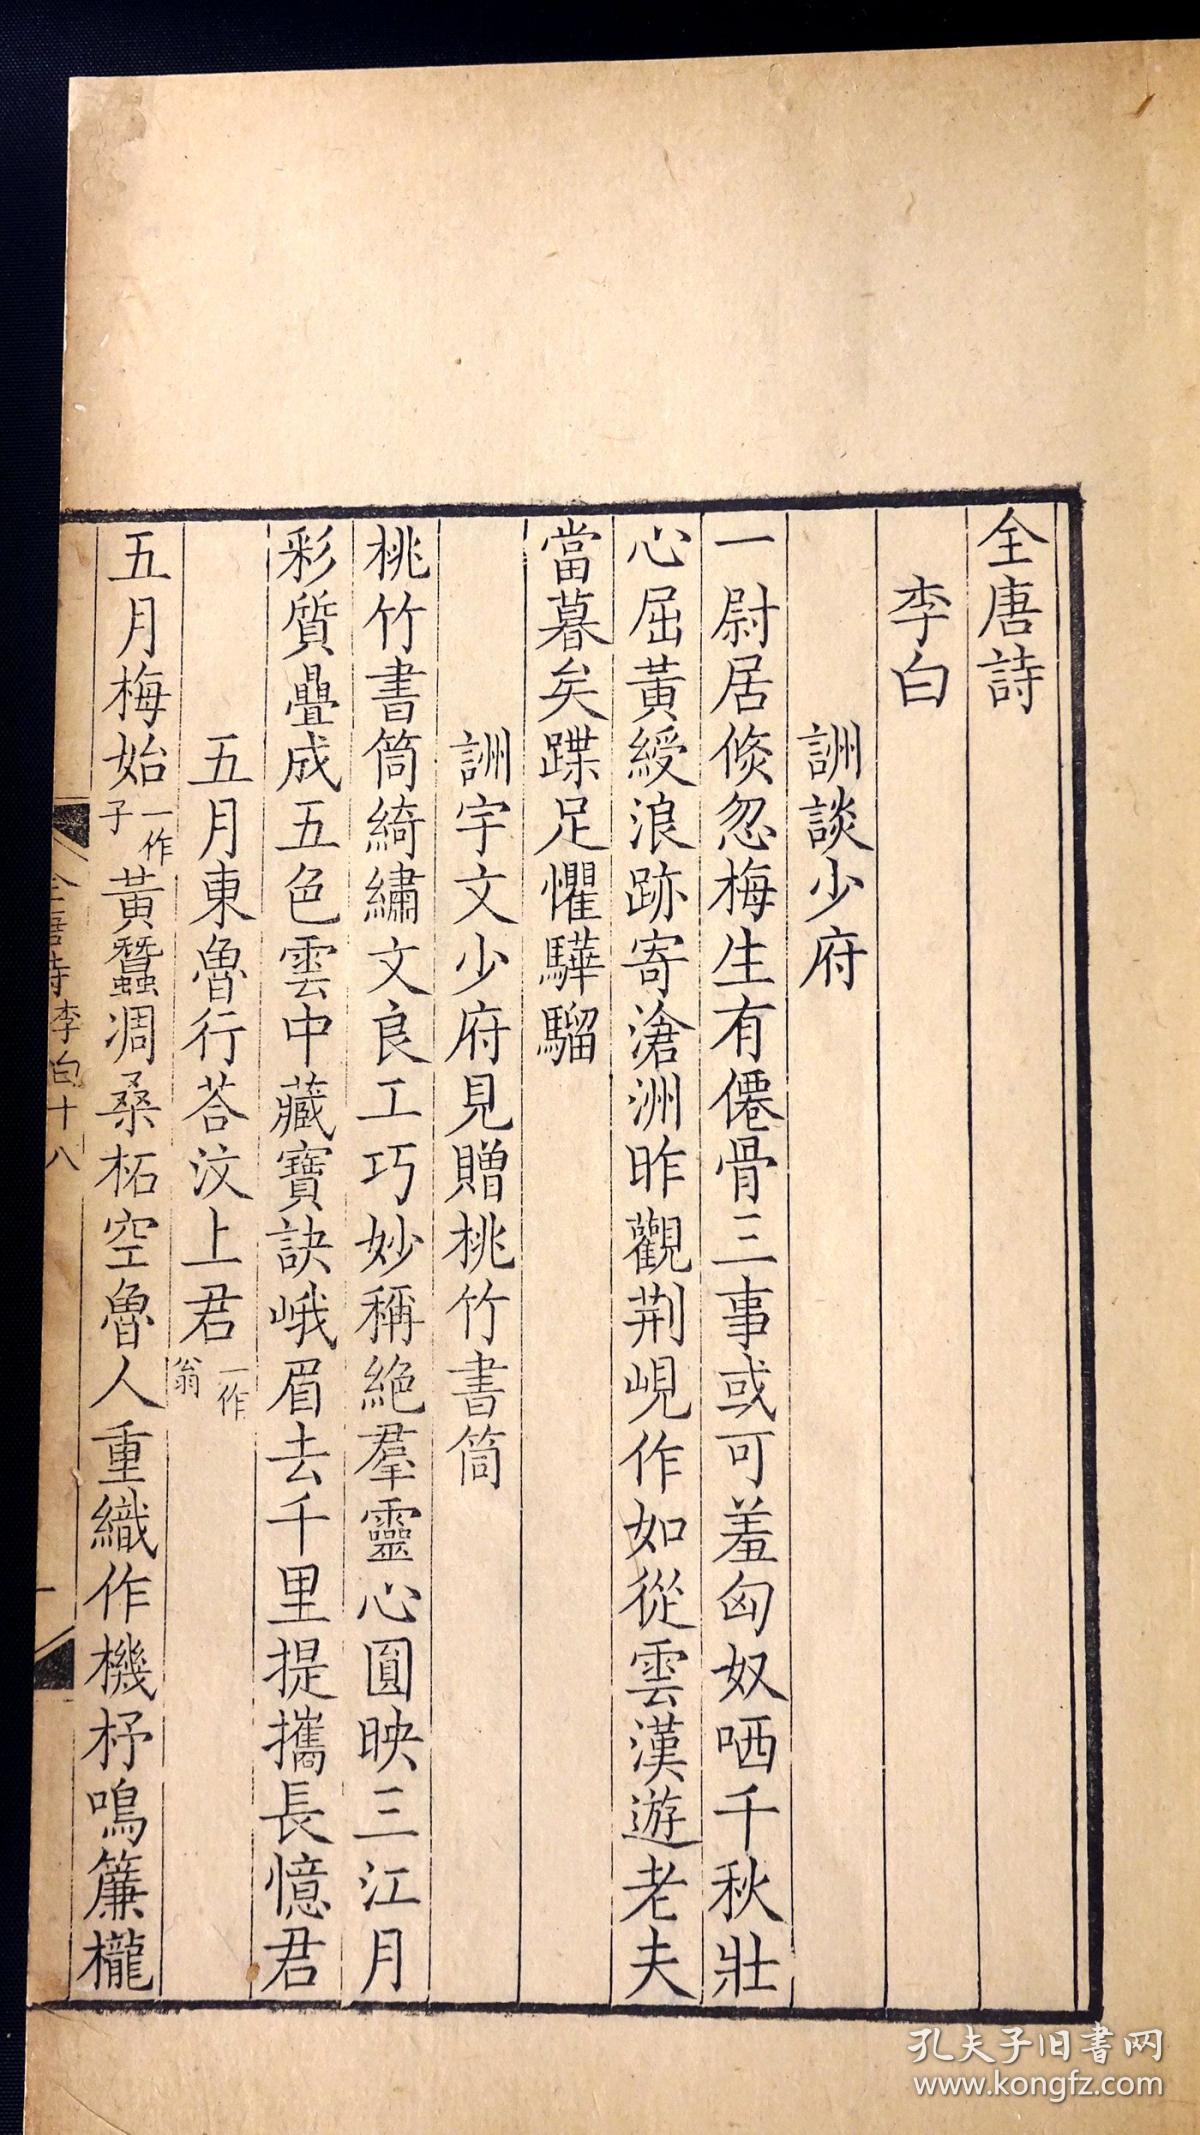 全唐詩
李白
詶談少府
一尉居倐忽梅生有僊骨三事或可羞匈奴哂千秋壯
心屈黃綬浪跡寄滄洲昨觀荆峴作如從雲漢遊老夫
當暮矣蹀足懼驊騮
詶宇文少府見贈桃竹書筒
桃竹書筒綺繡文良工巧妙稱絕羣靈心圓映三江月
彩質疊成五色雲中藏寶訣峨眉去千里提攜長憶君
五月東魯行荅汶上君一作翁
五月梅始一作子黃蠶凋桑柘空魯人重織作機杼鳴簾櫳
全唐詩李白十八
一
孔夫子旧書网
www.kongfz.com